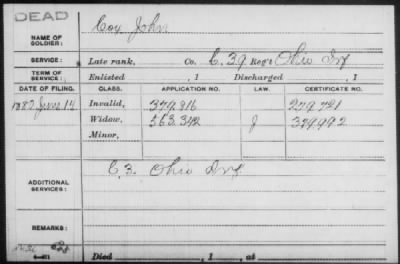 DEAD
NAME OF SOLDIER: Coy John
SERVICE: Late rank, Co. C. 39 Reg't Ohio Inf
TERM OF SERVICE: Enlisted , 1 Discharged , 1
DATE OF FILING. CLASS. APPLICATION NO. LAW. CERTIFICATE NO.
June 14 Invalid, 379.816
Widow, 563.342 J 379992
Minor,
ADDITIONAL SERVICES: C. 3. Ohio Inf
REMARKS:
Died , 1 , at